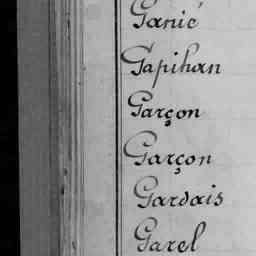 Ganié
Gapihan
Garçon
Garçon
Gardais
Garel